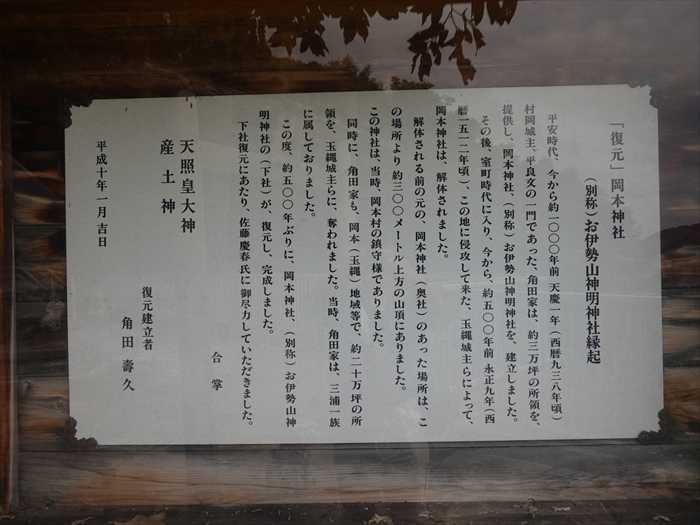 「復元」岡本神社
（別称）お伊勢山神明神社縁起
平安時代、今から約一〇〇〇年前 天慶一年（西暦九三八年頃）
村岡城主、平良文の一門であった、角田家は、約三万坪の所領を、
提供し、岡本神社、（別称）お伊勢山神明神社を、建立しました。
その後、室町時代に入り、今から、約五〇〇年前 永正九年（西
暦一五一二年頃）、この地に侵攻して来た、玉縄城主らによって、
岡本神社は、解体されました。
解体される前の元の、岡本神社（奥社）のあった場所は、こ
の場所より約三〇〇メートル上方の山頂にありました。
この神社は、当時、岡本村の鎮守様でありました。
同時に、角田家も、岡本（玉縄）地域等で、約二十万坪の所
領を、玉縄城主らに、奪われました。当時、角田家は、三浦一族
に属しておりました。
この度、約五〇〇年ぶりに、岡本神社、（別称）お伊勢山神
明神社の（下社）が、復元し、完成しました。
下社復元にあたり、佐藤慶春氏に御尽力していただきました。
合掌
天照皇大神
産土神
復元建立者
角田壽久
平成十年一月吉日